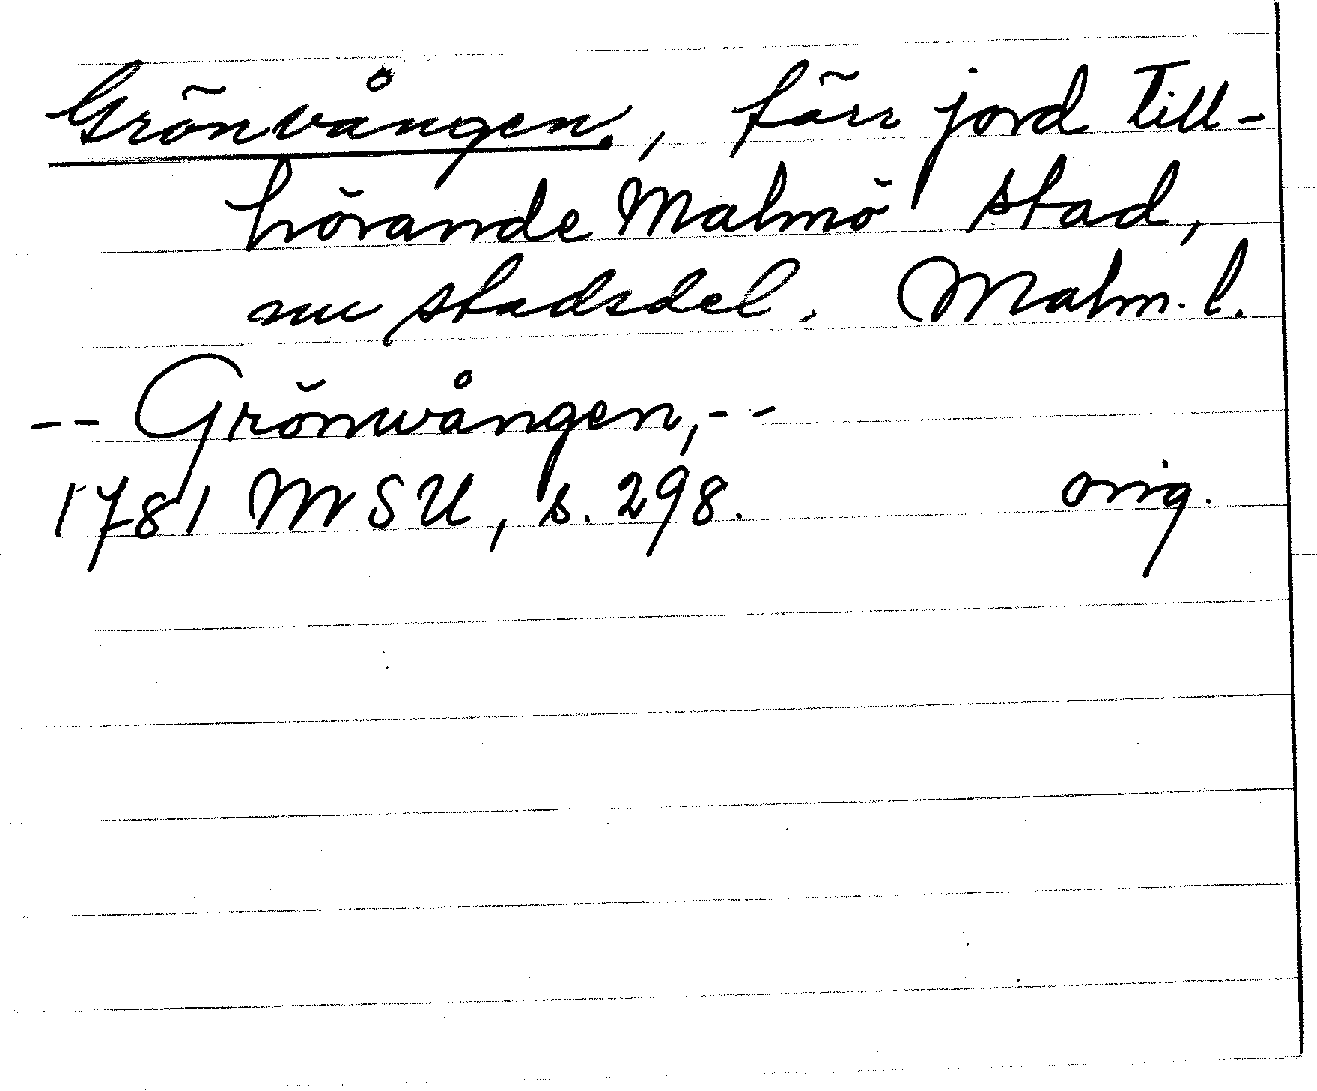 Grönvången, förr jord till-
hörande Malmö stad,
nu stadsdel. Malm. l.
-- Grönwången, --
1781 MSU, s. 298. orig.